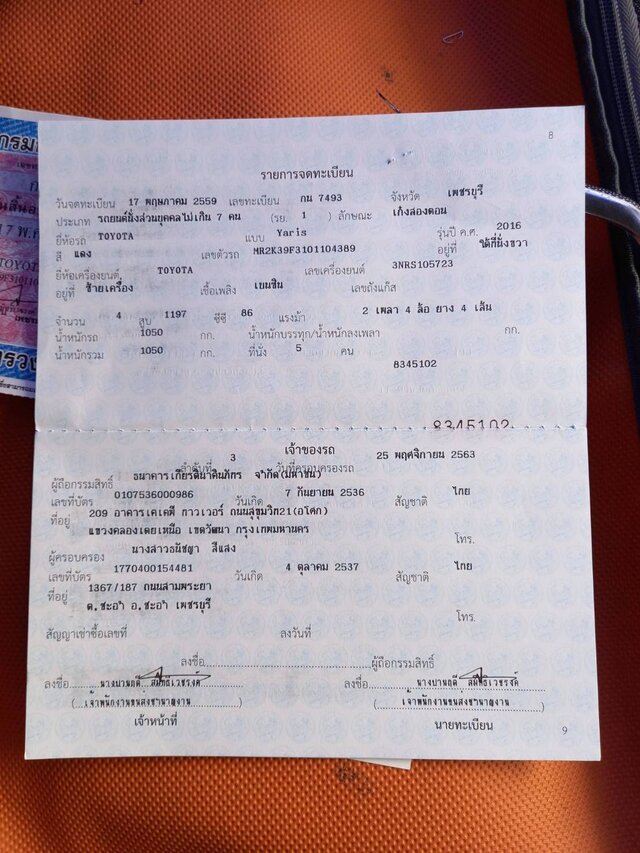 8
รายการจดทะเบียน
วันจดทะเบียน 17 พฤษภาคม 2559 เลขทะเบียน กน 7493 จังหวัด เพชรบุรี
ประเภท รถยนต์นั่งส่วนบุคคลไม่เกิน 7 คน (รย. 1 ) ลักษณะ เก๋งสองตอน
ยี่ห้อรถ TOYOTA แบบ Yaris รุ่นปี ค.ศ. 2016
สี แดง เลขตัวรถ MR2K39F3101104389 อยู่ที่ ใต้ที่นั่งขวา
ยี่ห้อเครื่องยนต์. TOYOTA เลขเครื่องยนต์ 3NRS105723
อยู่ที่ ซ้ายเครื่อง เชื้อเพลิง เบนซิน เลขถังแก๊ส
จำนวน 4 สูบ 1197 ซีซี 86 แรงม้า 2 เพลา 4 ล้อ ยาง 4 เส้น
น้ำหนักรถ 1050 กก. น้ำหนักบรรทุก/น้ำหนักลงเพลา กก.
น้ำหนักรวม 1050 กก. ที่นั่ง 5 คน
8345102
8345102
เจ้าของรถ
ลำดับที่ 3 วันที่ครอบครองรถ 25 พฤศจิกายน 2563
ผู้ถือกรรมสิทธิ์ ธนาคารเกียรตินาคินภัทร จำกัด(มหาชน)
เลขที่บัตร 0107536000986 วันเกิด 7 กันยายน 2536 สัญชาติ ไทย
ที่อยู่ 209 อาคารเคเคพี ทาวเวอร์ ถนนสุขุมวิท21(อโศก)
แขวงคลองเตยเหนือ เขตวัฒนา กรุงเทพมหานคร โทร.
ผู้ครอบครอง นางสาวธนิชญา สีแสง
เลขที่บัตร 1770400154481 วันเกิด 4 ตุลาคม 2537 สัญชาติ ไทย
ที่อยู่ 1367/187 ถนนสามพระยา
ต.ชะอำ อ.ชะอำ เพชรบุรี โทร.
สัญญาเช่าซื้อเลขที่ ลงวันที่
ลงชื่อ ผู้ถือกรรมสิทธิ์
ลงชื่อ นางปานฤดี สมิทธิเวชรงค์ ลงชื่อ นางปานฤดี สมิทธิเวชรงค์
( เจ้าพนักงานขนส่งชำนาญงาน ) ( เจ้าพนักงานขนส่งชำนาญงาน )
เจ้าหน้าที่ นายทะเบียน
9